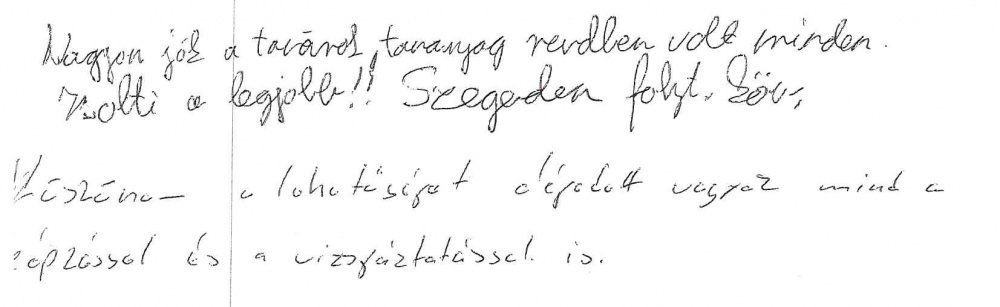 Nagyon jók a tanárok, tananyag rendben volt minden.
Zsolti a legjobb!! Szegeden folyt. köv.
Köszönom a lehetőséget elégedett vagyok mind a
képzéssel és a vizsgáztatással is.